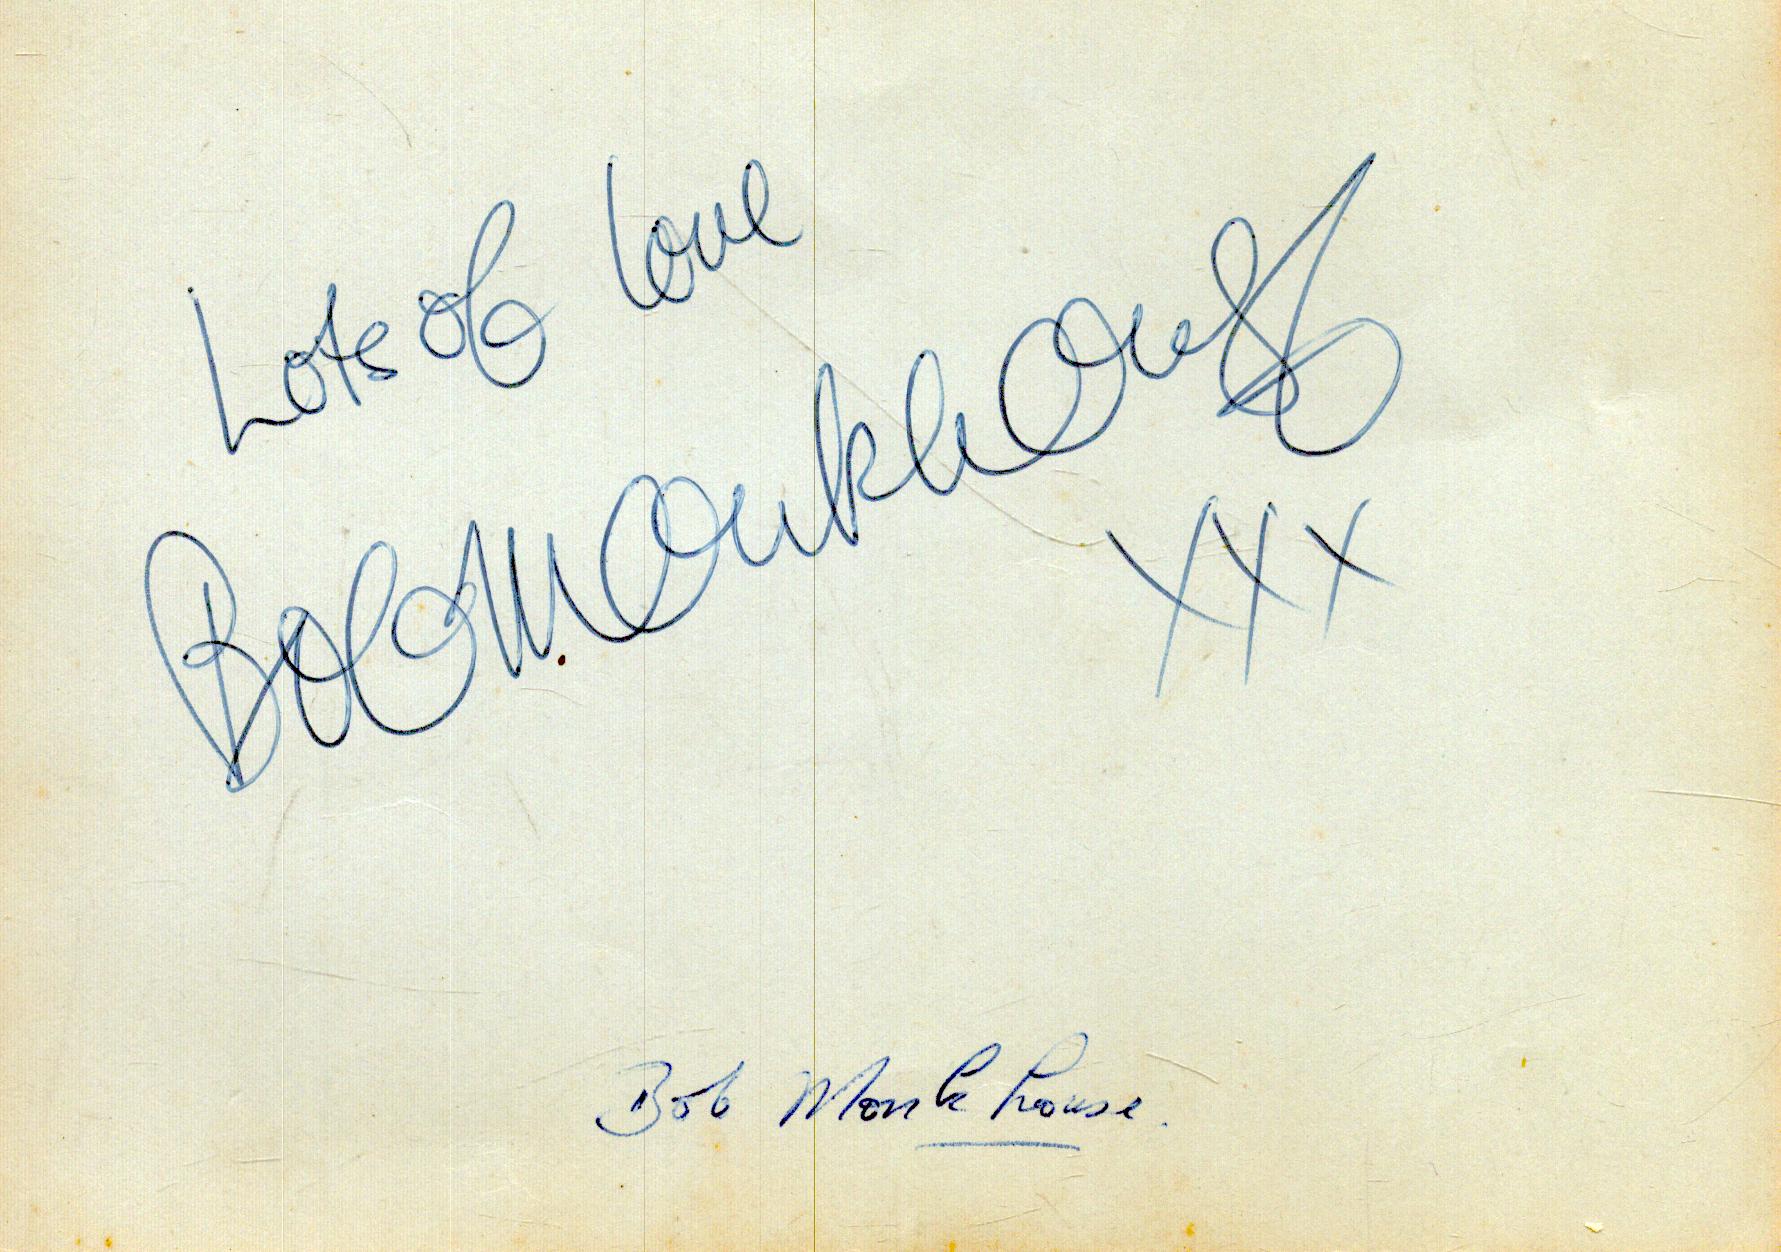 Lots of love
Bob Monkhouse
XXX
Bob Monkhouse.